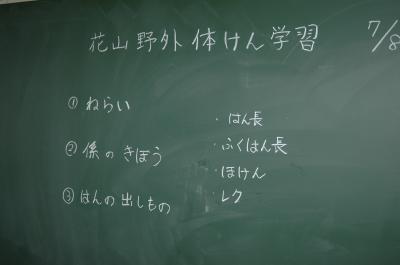 花山野外体けん学習
7/8
① ねらい
② 係のきぼう
③ はんの出しもの
・はん長
・ふくはん長
・ほけん
・レク